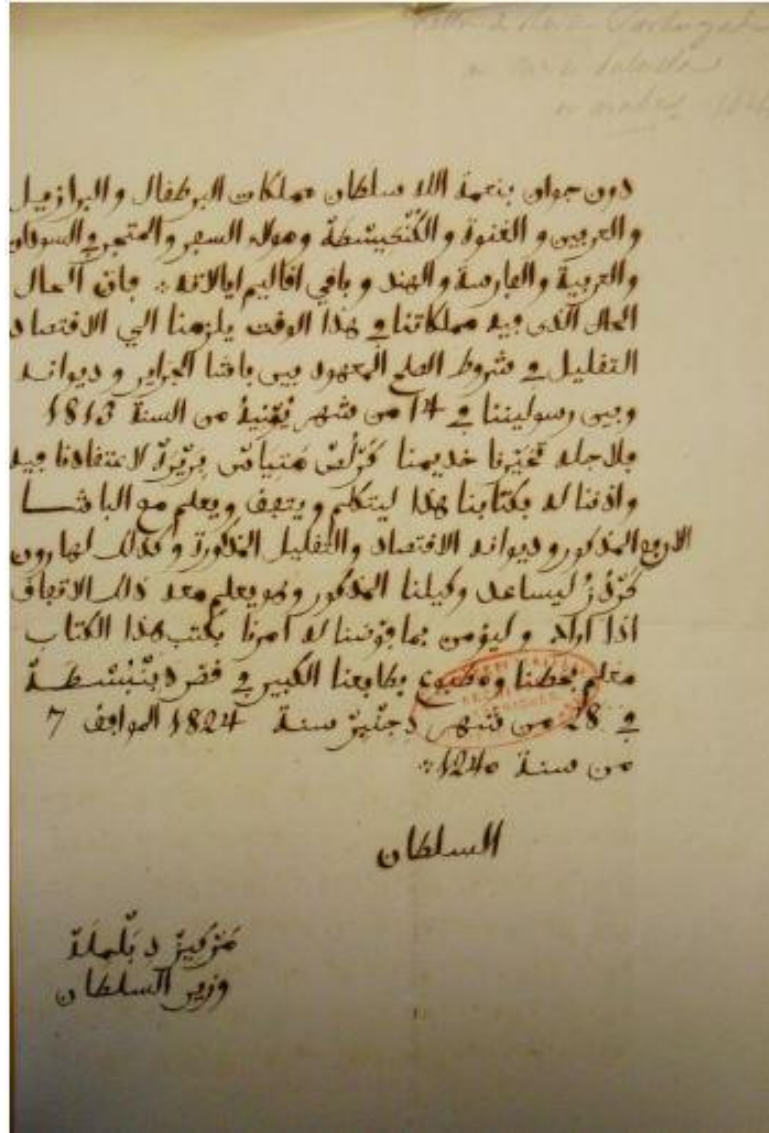 دون جوان بنعمة الله سلطان مملكات البرطفال والبرازيل
والغربين و الغنوة والكُنْكيسْطَة وهولاء السفر والمتجر في السودان
والعربية والفارسة والهند و باقي اقاليم ايالاته ∴ فان الحال
الحال الذى فيه مملكاتنا في هذا الوقت يلزمنا الي الاقتصاد
التقليل في شروط الصلح المعهود بين باشا الجزاير و ديوانه
وبين رسوليننا في 14 من شهر يُونْيهُ من السنة 1813
فلاجله تخيّرنا خديمنا كَرْلُصْ مَتِياسْ پِرَيْرَة لاعتقادنا فيه
واذنّا له بكتابنا هذا ليتكلم و يتفق و يعلم مع الباشا
الارفع المذكور و ديوانه الاقتصاد والتقليل المذكورة و كذلك لهارون
كَرْدُزُ ليساعد وكيلنا المذكور وهو يعلم معه ذلك الاتفاق
اذا اراد وليؤمن بما فوّضنا له امرنا بكتب هذا الكتاب
معلم بخطنا ومطبوع بطابعنا الكبير في قصر دبَنْبُسْطَة
في 28 من شهر دجنبر سنة 1824 الموافق 7
من سنة 1240 ∴
السلطان
مَرْكيز د بَلْمِلَة
وزير السلطان